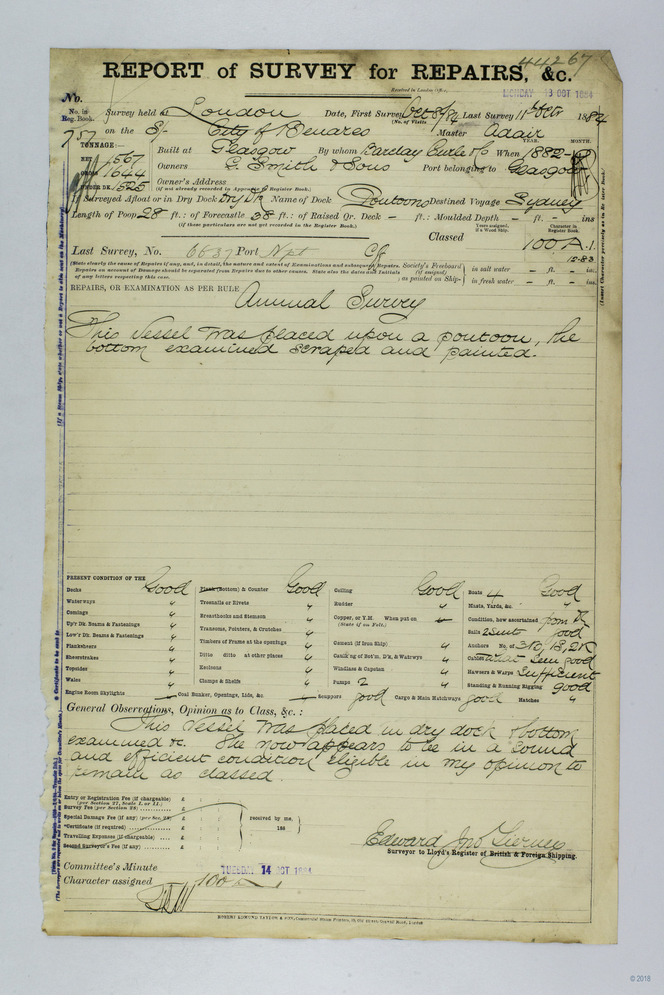 44267
REPORT of SURVEY for REPAIRS, &c.
Received in London Office,
MONDAY 13 OCT 1884
No.
No. in Reg. Book.
Survey held at London Date, First Survey Oct 8/84 Last Survey 11th Octr 1884
(No. of Visits)
757 on the S/- City of Benares Master Adair
TONNAGE:— YEAR. MONTH.
Built at Glasgow By whom Barclay Curle & Co When 1882
NET 1567
GROSS 1644 Owners G. Smith & Sons Port belonging to Glasgow
UNDER DK. 1525 Owner's Address
(if not already recorded by Appendix to Register Book.)
If Surveyed Afloat or in Dry Dock Dry Dk Name of Dock Pontoons Destined Voyage Sydney
Length of Poop 28 ft.: of Forecastle 38 ft.: of Raised Qr. Deck – ft.: Moulded Depth – ft. – ins
(if those particulars are not yet recorded in the Register Book).
Years assigned, if a Wood Ship. Character in Register Book.
Classed 100 A.1.
12.83
Last Survey, No. 6637 Port
(State clearly the cause of Repairs if any, and, in detail, the nature and extent of Examinations and subsequent Repairs. Repairs on account of Damage should be separated from Repairs due to other causes. State also the dates and Initials of any letters respecting this case.
Society's Freeboard (if assigned) as painted on Ship— in salt water – ft. – ins.
in fresh water – ft. – ins.
REPAIRS, OR EXAMINATION AS PER RULE Annual Survey
This Vessel was placed upon a pontoon, the
bottom examined scraped and painted.
PRESENT CONDITION OF THE
Decks Good
Waterways "
Comings "
Up'r Dk. Beams & Fastenings "
Low'r Dk. Beams & Fastenings "
Planksheers "
Sheerstrakes "
Topsides "
Wales "
Engine Room Skylights
Plank (Bottom) & Counter Good
Treenails or Rivets "
Breasthooks and Stemson "
Transoms, Pointers, & Crutches "
Timbers of Frame at the openings "
Ditto ditto at other places "
Keelsons "
Clamps & Shelfs "
Coal Bunker, Openings, Lids, &c.
Ceiling Good
Rudder "
Copper, or Y.M. When put on
(State if on Felt.)
Cement (if Iron Ship) "
Caulk'ng of Bot'm, D'k, & Watrwys "
Windlass & Capstan "
Pumps 2 "
Scuppers good Cargo & Main Hatchways good
Boats 4 Good
Masts, Yards, &c. "
Condition, how ascertained from Dk
Sails 2 Suits good
Anchors No. of 3 B, 1 S, 2 K
Cables what seen good
Hawsers & Warps Sufficient
Standing & Running Rigging good
Hatches "
General Observations, Opinion as to Class, &c.:
This Vessel was placed in dry dock & bottom
examined &c. She now appears to be in a sound
and efficient condition Eligible in my opinion to
remain as classed.
Entry or Registration Fee (if chargeable) £
(per Section 27, Scale 1. or 11.)
Survey Fee (per Section 28) £
Special Damage Fee (if any) (per Sec. 28) £
*Certificate (if required) £
Travelling Expenses (if chargeable) £
Second Surveyor's Fee (if any) £
received by me,
188
Edward Jno. Tierney
Surveyor to Lloyd's Register of British & Foreign Shipping.
Committee's Minute TUESDAY 14 OCT 1884
Character assigned 100 A
© 2018